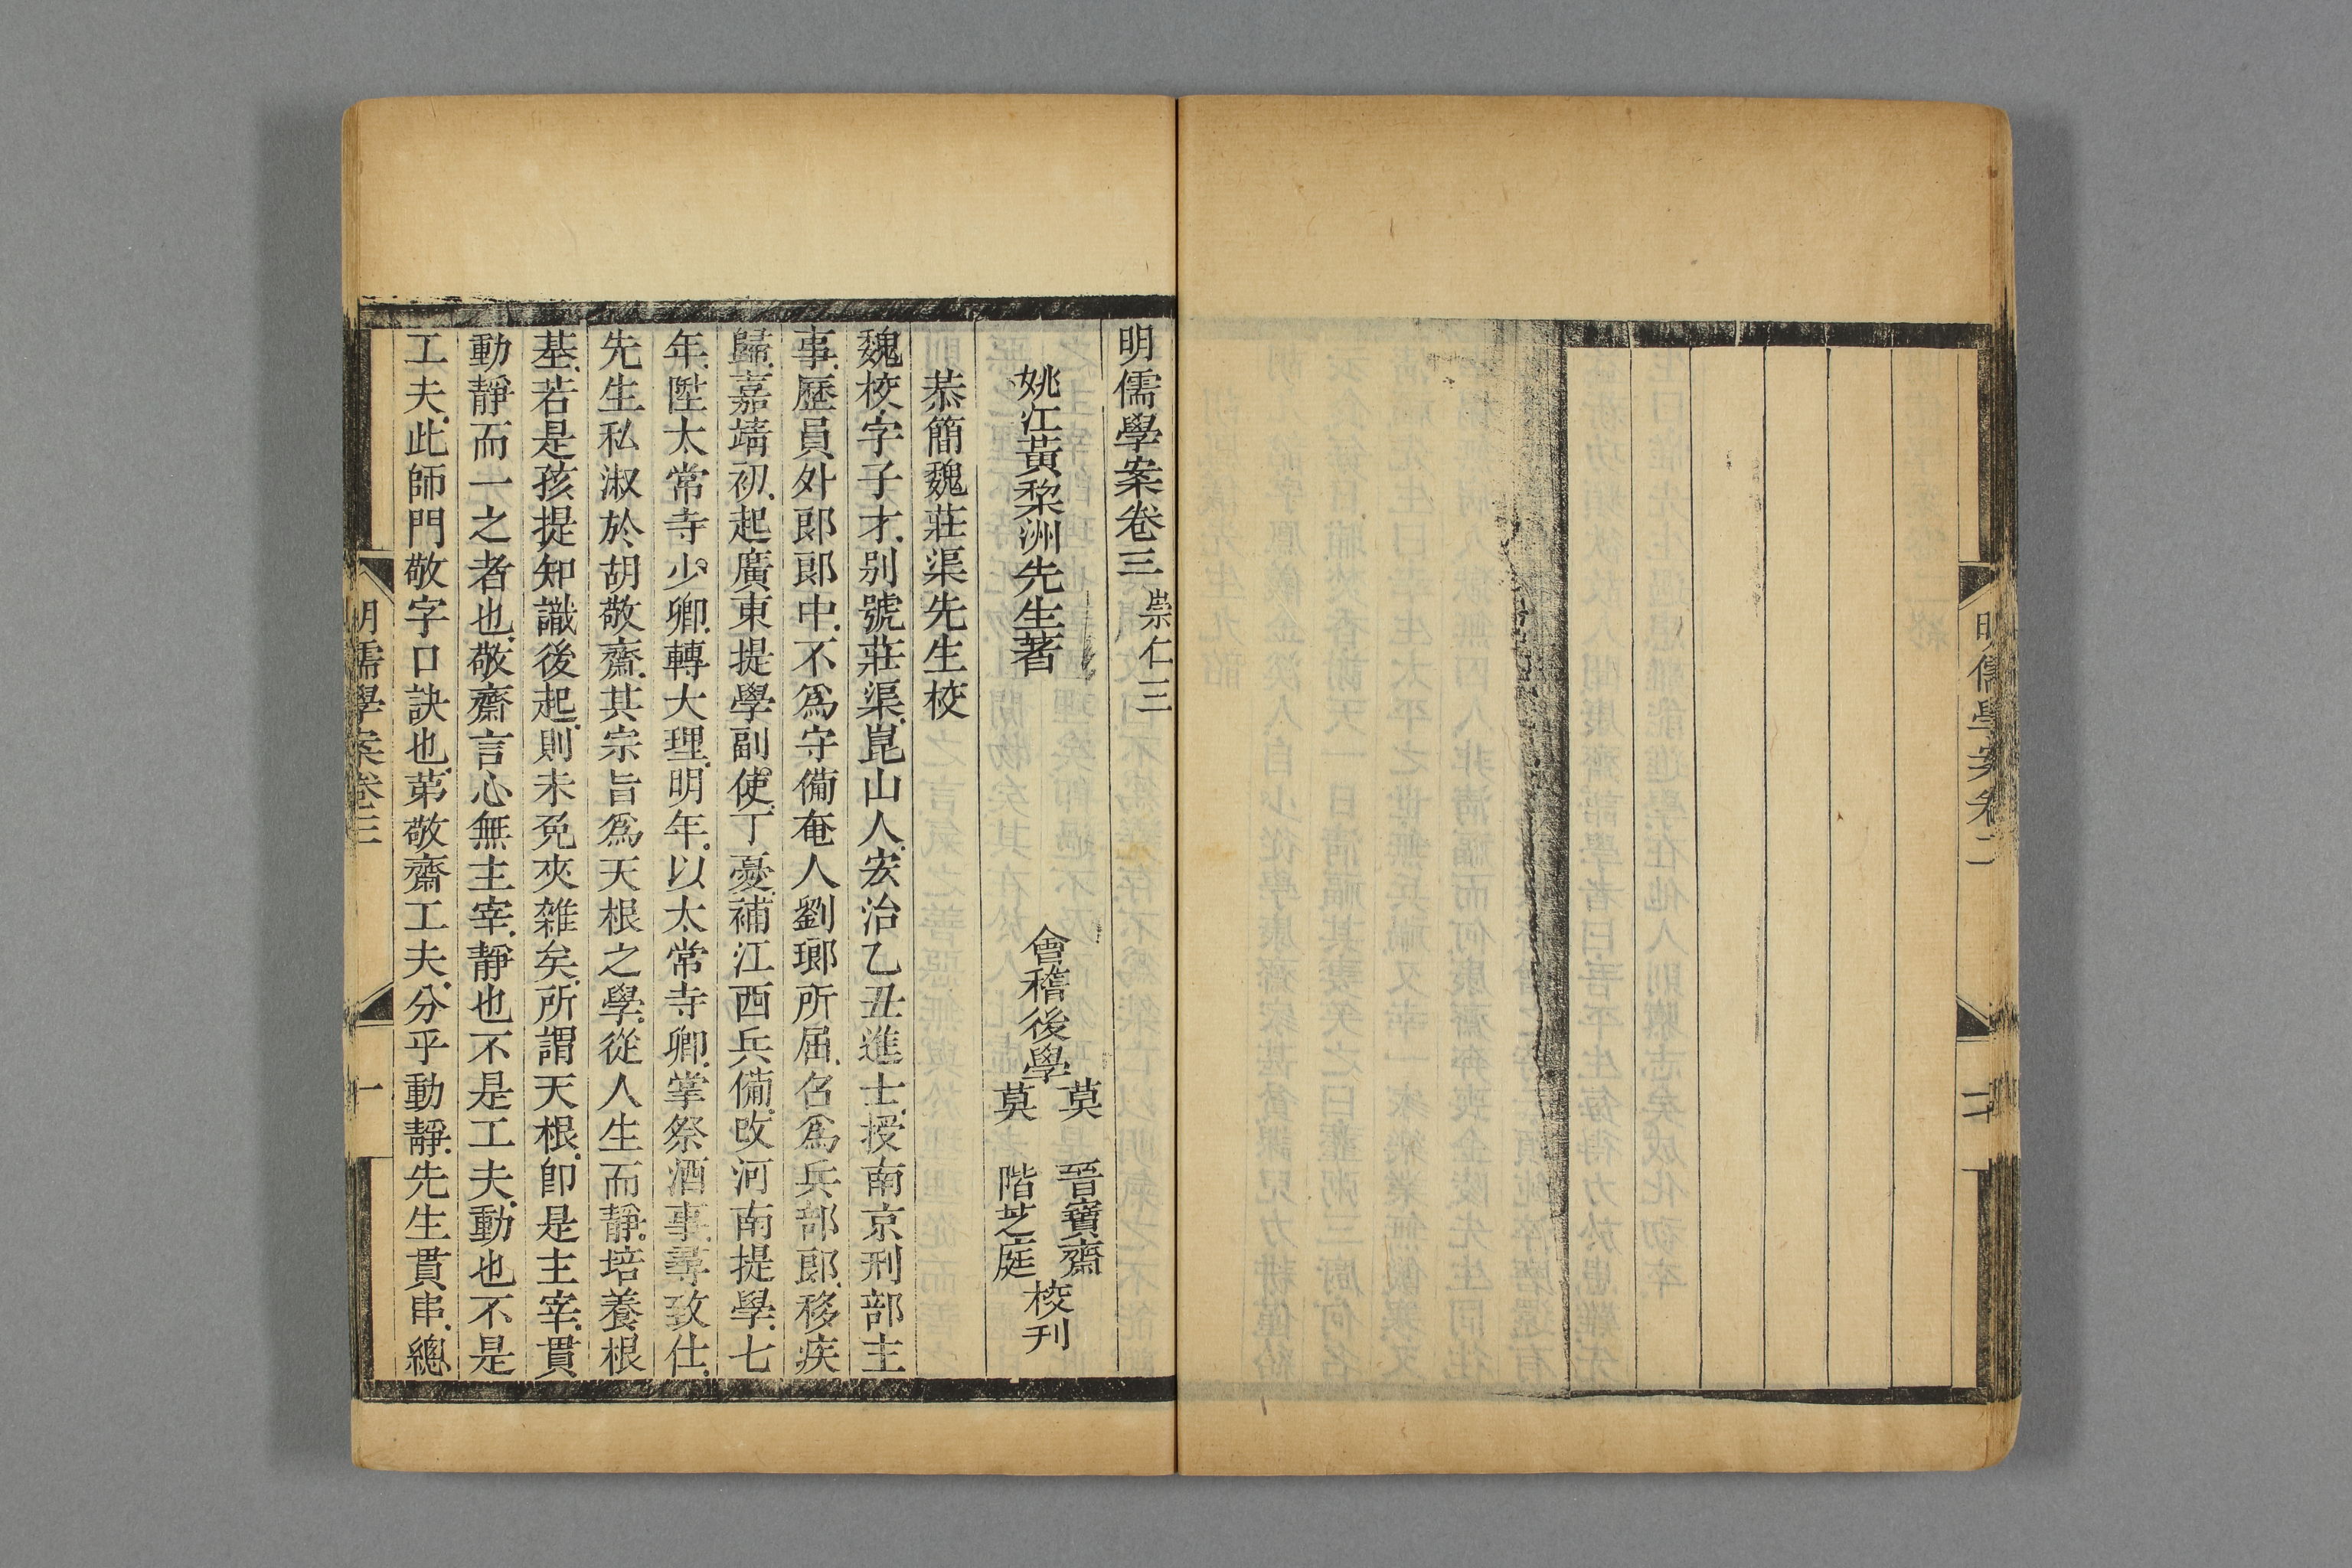 明儒學案卷二
明儒學案卷三 崇仁三
姚江黃棃洲先生著 會稽後學 莫 晉寶齋 莫 階芝庭 校刊
恭簡魏莊渠先生校
魏校字子才别號莊渠崑山人宏治乙丑進士授南京刑部主
事歷員外郎郎中不爲守備奄人劉瑯所屈召爲兵部郎移疾
歸嘉靖初起廣東提學副使丁憂補江西兵備改河南提學七
年陞太常寺少卿轉大理明年以太常寺卿掌祭酒事尋致仕
先生私淑於胡敬齋其宗旨爲天根之學從人生而靜培養根
基若是孩提知識後起則未免夾雜矣所謂天根卽是主宰貫
動靜而一之者也敬齋言心無主宰靜也不是工夫動也不是
工夫此師門敬字口訣也苐敬齋工夫分乎動靜先生貫串總
明儒學案卷三
一